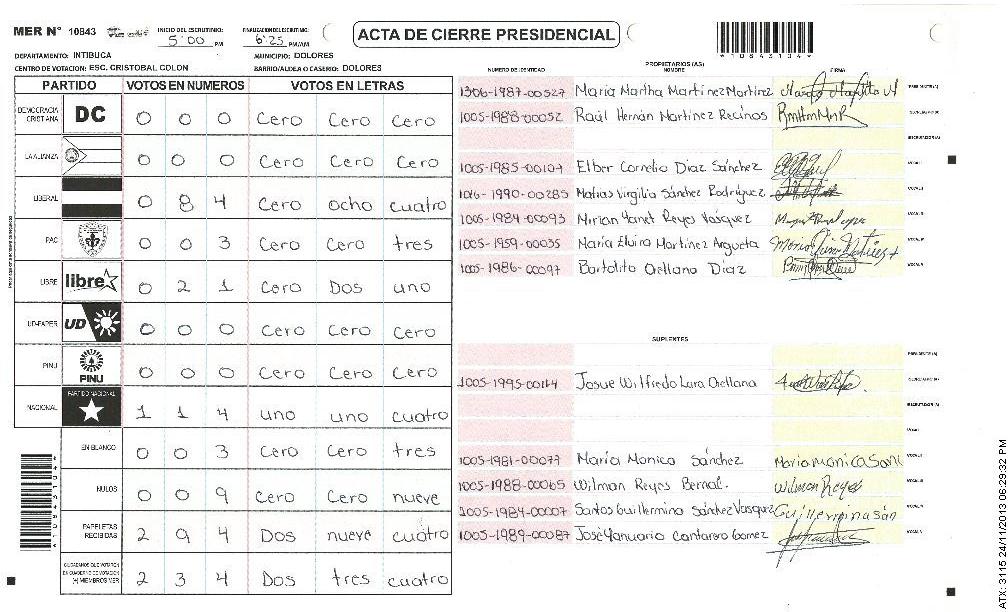 MER N° 10843 INICIO DEL ESCRUTINIO: 5:00 PM FINALIZACION DEL ESCRUTINIO: 6:25 PM/AM.
ACTA DE CIERRE PRESIDENCIAL
DEPARTAMENTO: INTIBUCA MUNICIPIO: DOLORES
CENTRO DE VOTACION: ESC. CRISTOBAL COLON BARRIO/ALDEA O CASERIO: DOLORES
PARTIDO VOTOS EN NUMEROS VOTOS EN LETRAS
DEMOCRACIA CRISTIANA DC 0 0 0 Cero Cero Cero
LA ALIANZA 0 0 0 Cero Cero Cero
LIBERAL 0 8 4 Cero ocho cuatro
PAC 0 0 3 Cero Cero tres
LIBRE libre 0 2 1 Cero Dos uno
UD-FAPER UD 0 0 0 Cero Cero Cero
PINU PINU 0 0 0 Cero Cero Cero
NACIONAL PARTIDO NACIONAL 1 1 4 uno uno cuatro
EN BLANCO 0 0 3 Cero Cero tres
NULOS 0 0 9 Cero Cero nueve
PAPELETAS RECIBIDAS 2 9 4 Dos nueve cuatro
CIUDADANOS QUE VOTARON EN CUADERNO DE VOTACION (+) MIEMBROS MER 2 3 4 Dos tres cuatro
*10843104*
PROPIETARIOS (AS)
NUMERO DE IDENTIDAD NOMBRE FIRMA
1306-1987-00527 Maria Martha Martinez Martinez PRESIDENTE (A)
1005-1988-00052 Raúl Hernán Martinez Recinos SECRETARIO (A)
ESCRUTADOR (A)
1005-1985-00107 Elber Cornelio Diaz Sánchez VOCAL I
1016-1990-00285 Matias Virgilio Sánchez Rodríguez VOCAL II
1005-1984-00093 Mirian Yanet Reyes Vasquez VOCAL III
1005-1959-00035 Maria Elvira Martinez Argueta VOCAL IV
1005-1986-00097 Bartolito Orellana Diaz VOCAL V
SUPLENTES
PRESIDENTE (A)
1005-1995-00164 Josue Wilfredo Lara Orellana SECRETARIO (A)
ESCRUTADOR (A)
VOCAL I
1005-1981-00077 Maria Monica Sánchez Maria monica San VOCAL II
1005-1988-00065 Wilman Reyes Bernal. Wilman Reyes VOCAL III
1005-1984-00007 Santos Guillermina Sánchez Vasquez Guillermina sán VOCAL IV
1005-1989-00087 José Yanuario Cantarero Gomez VOCAL V
ATX: 3115 24/11/2013 06:29:32 PM